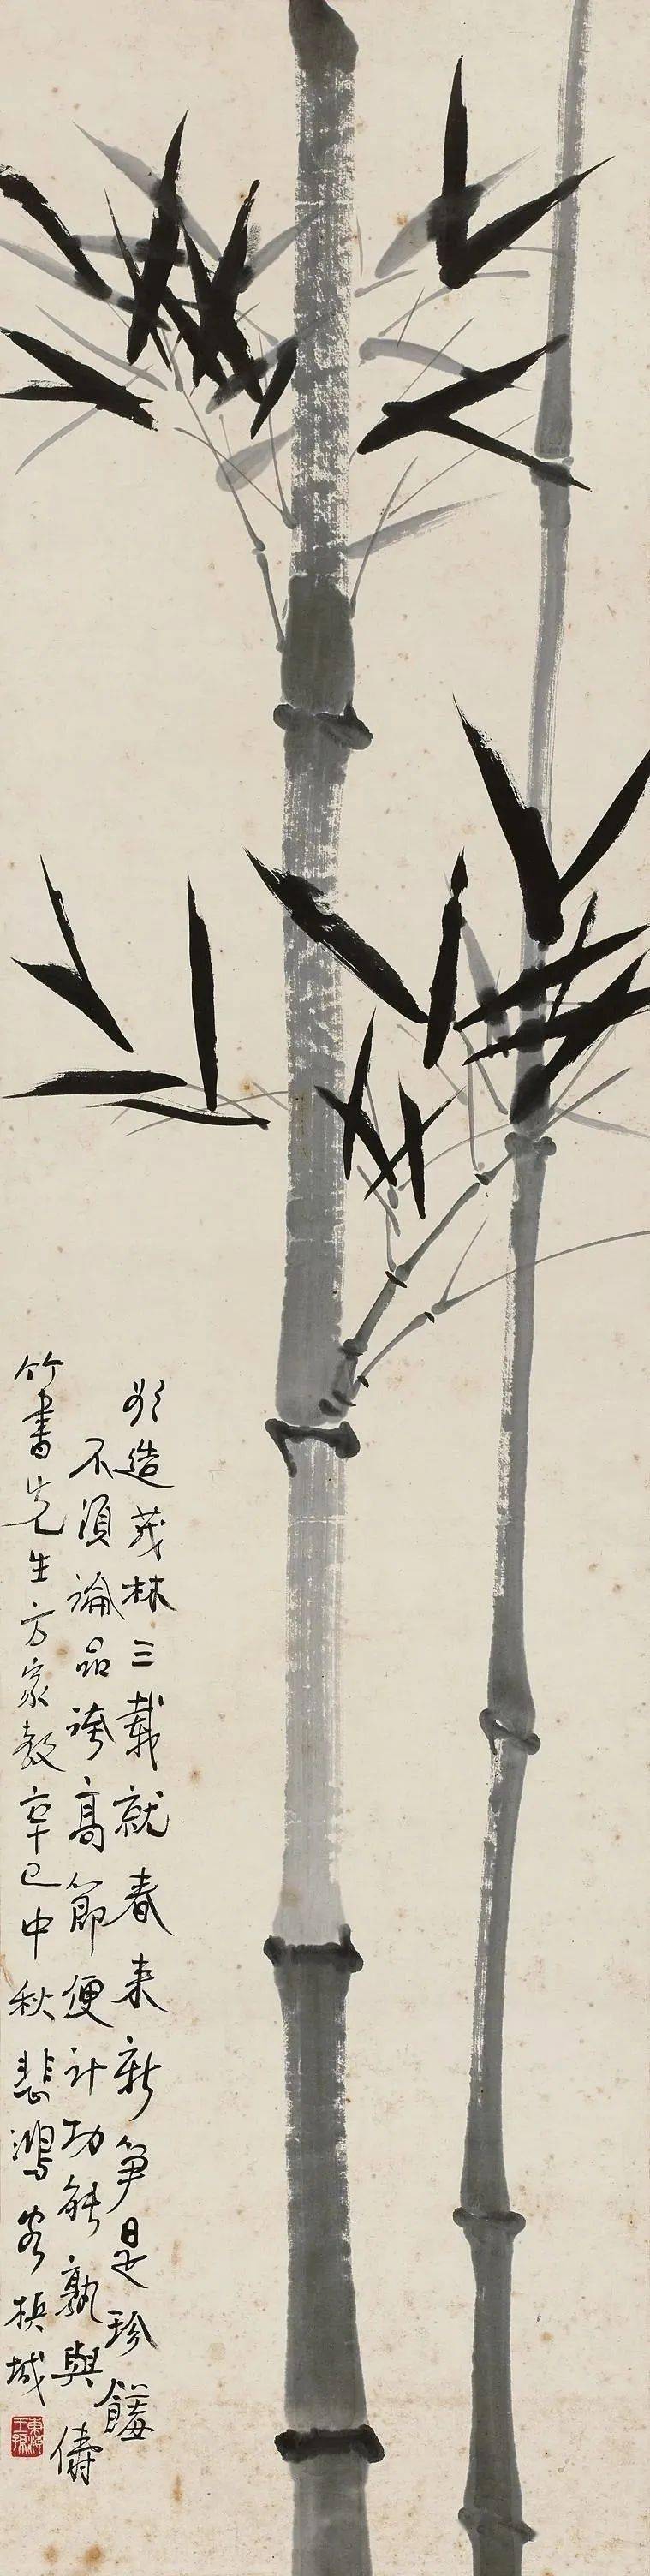 欲造茂林三載就春来新笋是珍饈
不須論品誇高節便計功能孰與儔
竹書先生方家教辛巳中秋悲鴻客檳城
東海王孫